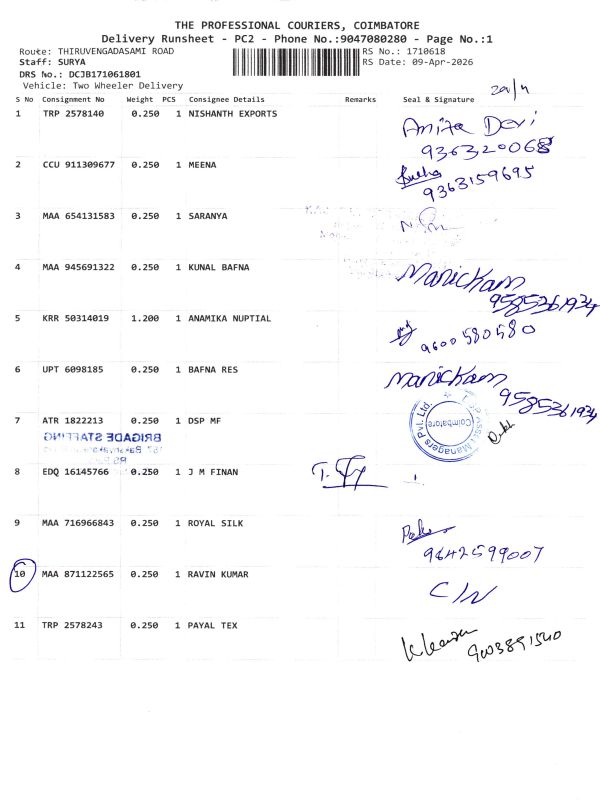 THE PROFESSIONAL COURIERS, COIMBATORE
Delivery Runsheet - PC2 - Phone No.:9047080280 - Page No.:1
Route: THIRUVENGADASAMI ROAD
RS No.: 1710618
Staff: SURYA
RS Date: 09-Apr-2026
DRS No.: DCJB171061801
Vehicle: Two Wheeler Delivery
S No Consignment No Weight PCS Consignee Details Remarks Seal & Signature
1 TRP 2578140 0.250 1 NISHANTH EXPORTS
Anita Devi
9363320068
2 CCU 911309677 0.250 1 MEENA
9363159695
3 MAA 654131583 0.250 1 SARANYA
4 MAA 945691322 0.250 1 KUNAL BAFNA
Manickam
9585361934
5 KRR 50314019 1.200 1 ANAMIKA NUPTIAL
9600580580
6 UPT 6098185 0.250 1 BAFNA RES
Manickam
9585361934
7 ATR 1822213 0.250 1 DSP MF
Asset Managers Pvt. Ltd.
Coimbatore
BRIGADE STAFFING
8 EDQ 16145766 0.250 1 J M FINAN
9 MAA 716966843 0.250 1 ROYAL SILK
9642599007
10 MAA 871122565 0.250 1 RAVIN KUMAR
C/N
11 TRP 2578243 0.250 1 PAYAL TEX
9003891540